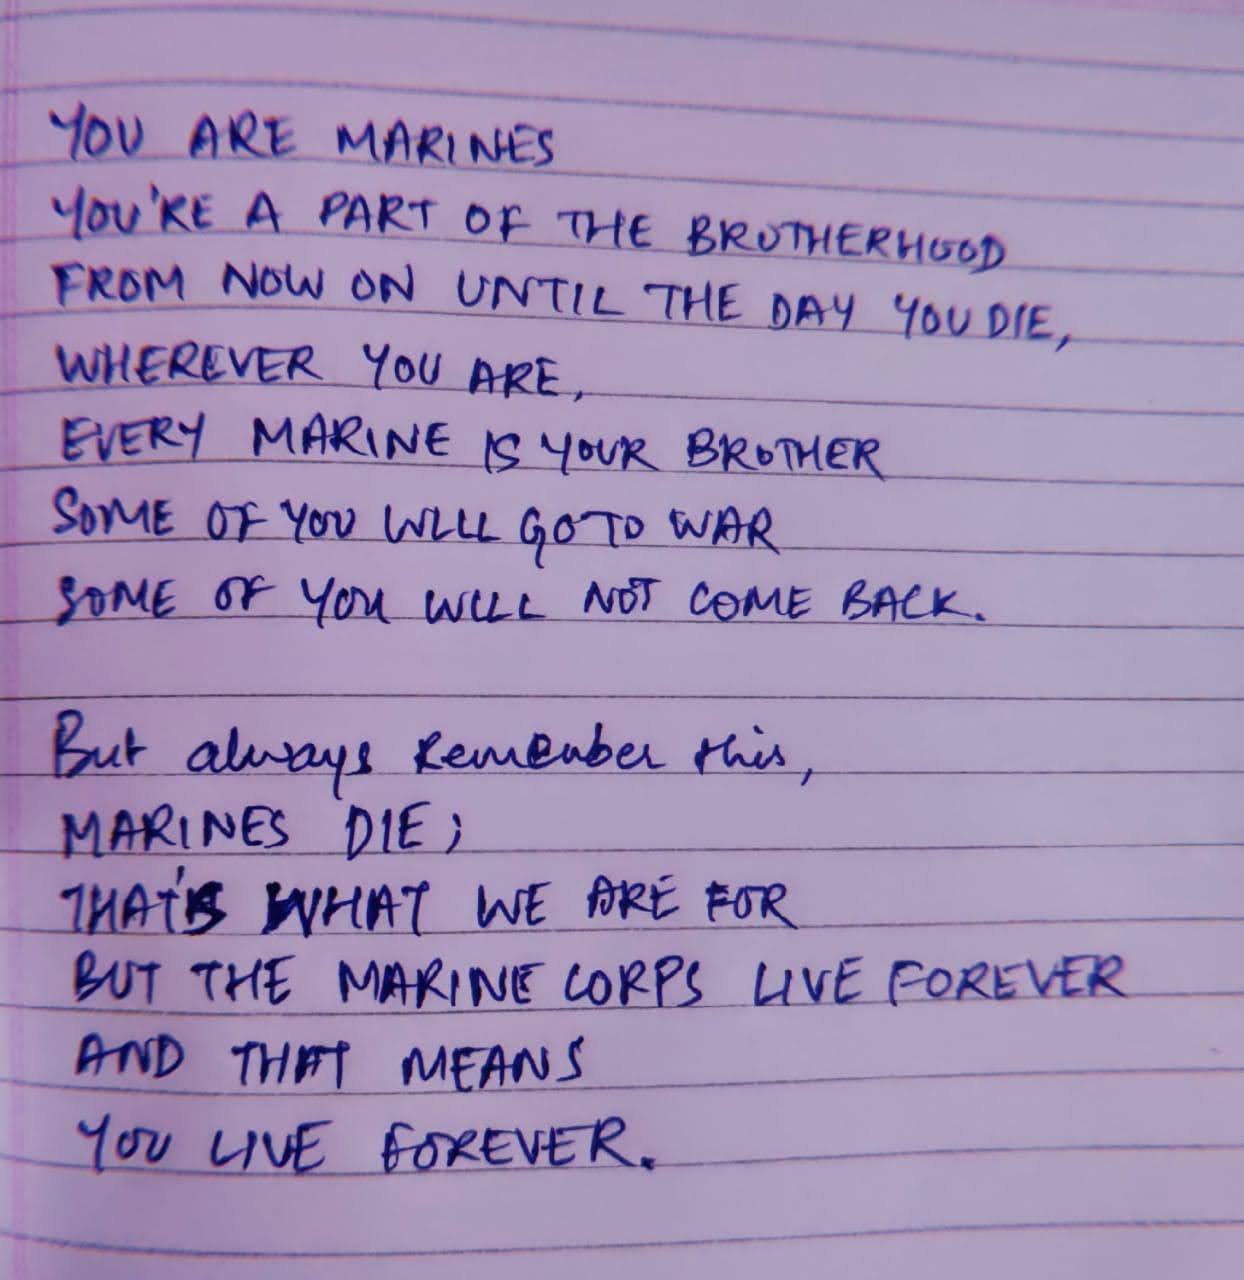 YOU ARE MARINES
YOU'RE A PART OF THE BROTHERHOOD
FROM NOW ON UNTIL THE DAY YOU DIE,
WHEREVER YOU ARE,
EVERY MARINE IS YOUR BROTHER
SOME OF YOU WILL GO TO WAR
SOME OF YOU WILL NOT COME BACK.
But always Remember this,
MARINES DIE;
THAT'S WHAT WE ARE FOR
BUT THE MARINE CORPS LIVE FOREVER
AND THAT MEANS
YOU LIVE FOREVER.